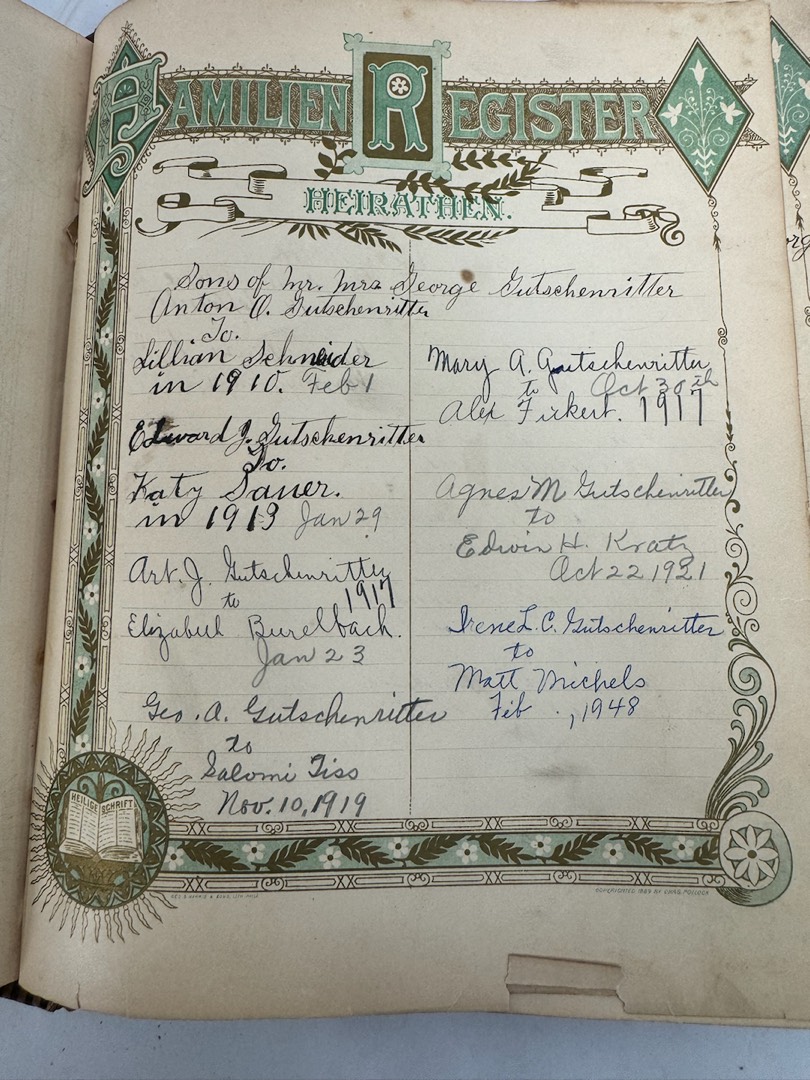 FAMILIEN REGISTER
HEIRATHEN.
Sons of Mr. Mrs George Gutschenritter
Anton O. Gutschenritter
To.
Lillian Schneider
in 1910. Feb 1
Edward J. Gutschenritter
To.
Katy Sauer.
in 1913 Jan 29
Art. J. Gutschenritter
to 1917
Elizabeth Burelbach.
Jan 23
Geo. A. Gutschenritter
to
Salomi Tiss
Nov. 10, 1919
Mary A. Gutschenritter
to Oct 30th
Alex Fickert. 1917
Agnes M Gutschenritter
to
Edwin H. Kratz
Oct 22 1921
Irene L. C. Gutschenritter
to
Matt Michels
Feb , 1948
HEILIGE SCHRIFT
COPYRIGHTED 1889 BY CHAS. POLLOCK